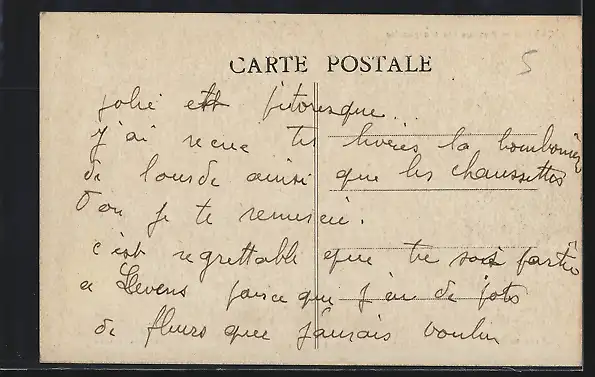 CARTE POSTALE
5
jolie et pitoresque...
j'ai recue tes livres la bombonière
de lourde ainsi que les chaussettes
Don je te remercie.
c'est regrettable que tu sois partie
a Levens parce que j'ai de pots
de fleurs que j'aurais voulu